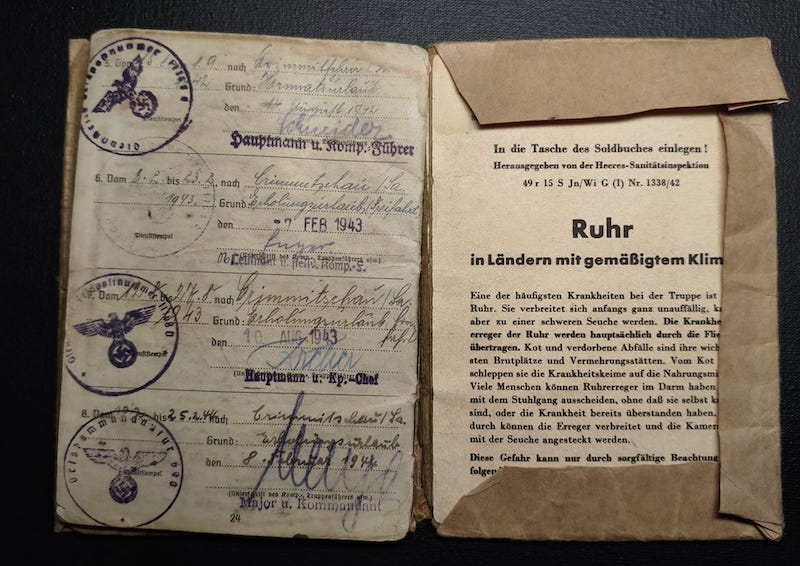 5. Vom bis 19 nach Crimmitschau
42 Grund: Heimaturlaub
den 14. August 1942
Dienststempel
Schneider
Hauptmann u. Komp.-Führer
6. Vom 8.2. bis 23.2. nach Crimmitschau/Sa.
1943. Grund: Erholungsurlaub/Freifahrt
den -7 FEB 1943
Dienststempel
Leutnant u. stellv. Komp.-F.
7. Vom bis 27.8. nach Crimmitschau/Sa.
1943 Grund: Erholungsurlaub
den 10 AUG 1943
Dienststempel
Hauptmann u. Kp.-Chef
8. Vom bis 25.2.44 nach Crimmitschau/Sa.
Grund: Erholungsurlaub
den 8. Februar 1944
Dienststempel
(Unterschrift des Komp.-, Truppenführers usw.)
Major u. Kommandant
24
Ortskommandantur
In die Tasche des Soldbuches einlegen!
Herausgegeben von der Heeres-Sanitätsinspektion
49 r 15 S Jn/Wi G (I) Nr. 1338/42
Ruhr
in Ländern mit gemäßigtem Klim
Eine der häufigsten Krankheiten bei der Truppe ist
Ruhr. Sie verbreitet sich anfangs ganz unauffällig, k
aber zu einer schweren Seuche werden. Die Krankhe
erreger der Ruhr werden hauptsächlich durch die Flie
übertragen. Kot und verdorbene Abfälle sind ihre wich
sten Brutplätze und Vermehrungsstätten. Vom Kot
schleppen sie die Krankheitskeime auf die Nahrungsmi
Viele Menschen können Ruhrerreger im Darm haben
mit dem Stuhlgang ausscheiden, ohne daß sie selbst k
sind, oder die Krankheit bereits überstanden haben.
durch können die Erreger verbreitet und die Kamer
mit der Seuche angesteckt werden.
Diese Gefahr kann nur durch sorgfältige Beachtung
folgen